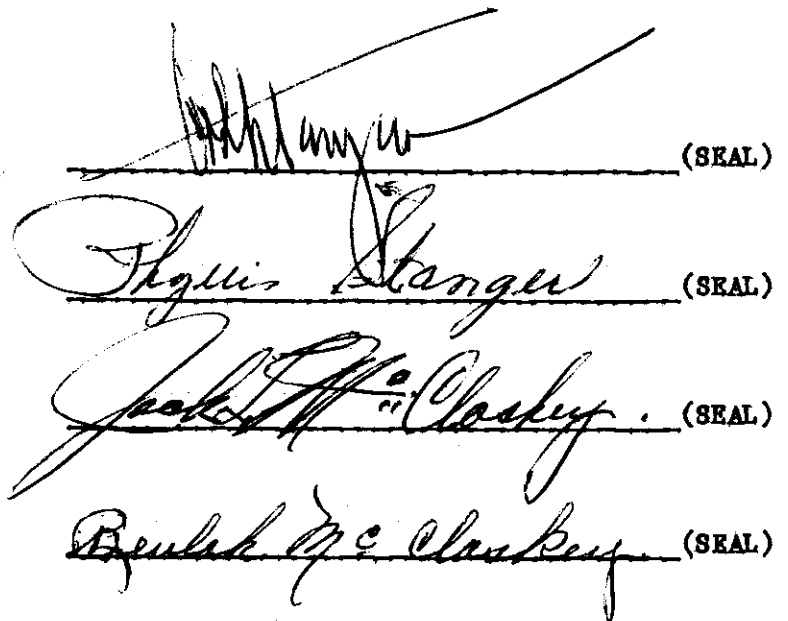 (SEAL)
Phyllis Stanger (SEAL)
Jack McCloskey. (SEAL)
Beulah McCloskey. (SEAL)